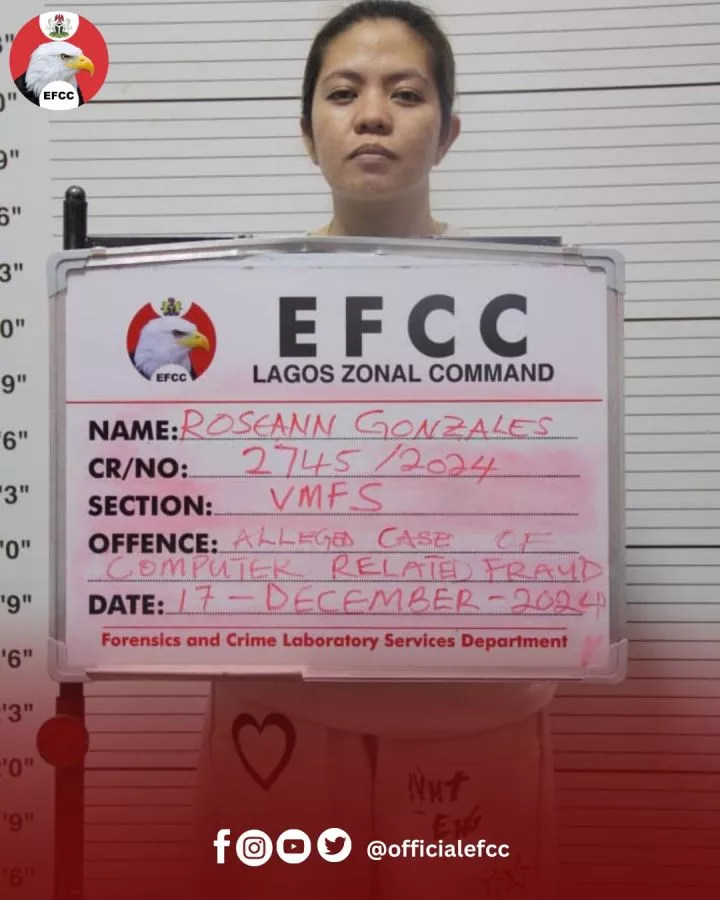 EFCC
EFCC
EFCC
LAGOS ZONAL COMMAND
NAME: ROSEANN GONZALES
CR/NO: 2745/2024
SECTION: VMFS
OFFENCE: ALLEGED CASE OF
COMPUTER RELATED FRAUD
DATE: 17-DECEMBER-2024
Forensics and Crime Laboratory Services Department
NMT
ENG
@officialefcc